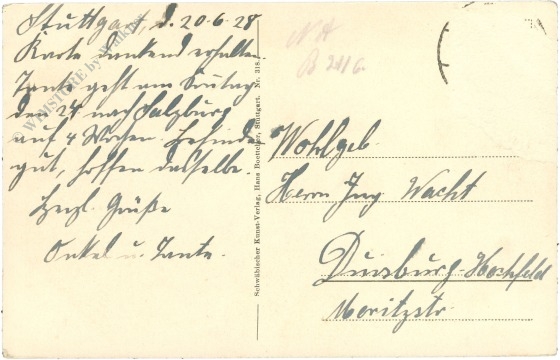 Stuttgart, d. 20-6-28
Karte dankend erhalten
Tante geht am Sonntag
den 24 nach Salzburg
auf 4 Wochen. Befinden
gut, hoffen dasselbe.
Herzl. Grüße
Onkel u. Tante.
© WAMSTORE by Walkner
Schwäbischer Kunst-Verlag, Hans Boettcher, Stuttgart. Nr. 318.
Wohlgeb.
Herrn Ing. Wacht
Duisburg-Hochfeld
Moritzstr.